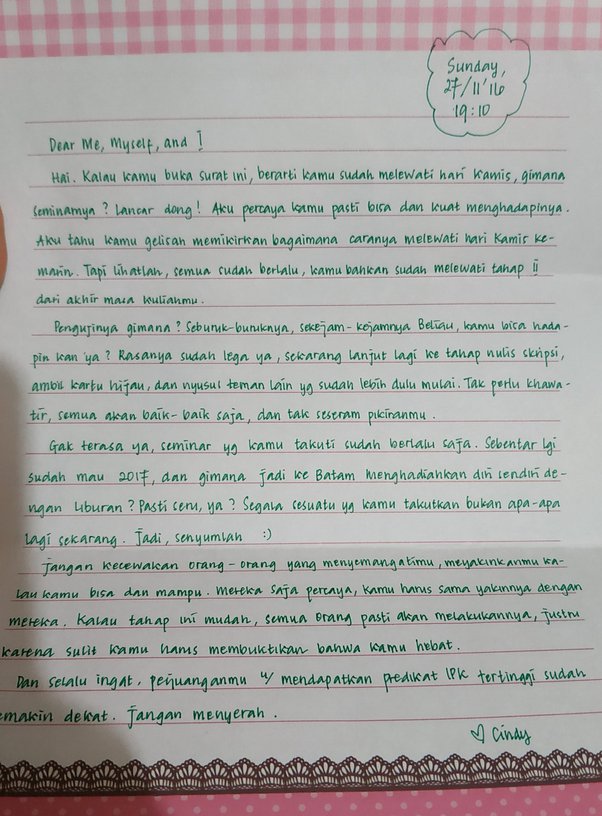 Sunday,
27/11'16
19:10
Dear Me, Myself, and I
Hai. Kalau kamu buka surat ini, berarti kamu sudah melewati hari Kamis, gimana
seminarnya? Lancar dong! Aku percaya kamu pasti bisa dan kuat menghadapinya.
Aku tahu kamu gelisah memikirkan bagaimana caranya melewati hari Kamis ke-
marin. Tapi lihatlah, semua sudah berlalu, kamu bahkan sudah melewati tahap II
dari akhir masa kuliahmu.
Pengujinya gimana? Seburuk-buruknya, sekejam-kejamnya Beliau, kamu bisa hada-
pin kan ya? Rasanya sudah lega ya, sekarang lanjut lagi ke tahap nulis skripsi,
ambil kartu hijau, dan nyusul teman lain yg sudah lebih dulu mulai. Tak perlu khawa-
tir, semua akan baik-baik saja, dan tak seseram pikiranmu.
Gak terasa ya, seminar yg kamu takuti sudah berlalu saja. Sebentar lgi
sudah mau 2017, dan gimana jadi ke Batam menghadiahkan diri sendiri de-
ngan liburan? Pasti seru, ya? Segala sesuatu yg kamu takutkan bukan apa-apa
lagi sekarang. Jadi, senyumlah :)
Jangan kecewakan orang-orang yang menyemangatimu, meyakinkanmu ka-
lau kamu bisa dan mampu. Mereka saja percaya, kamu harus sama yakinnya dengan
mereka. Kalau tahap ini mudah, semua orang pasti akan melakukannya, justru
karena sulit kamu harus membuktikan bahwa kamu hebat.
Dan selalu ingat, perjuanganmu u/ mendapatkan predikat IPK tertinggi sudah
emakin dekat. Jangan menyerah.
♡ Cindy